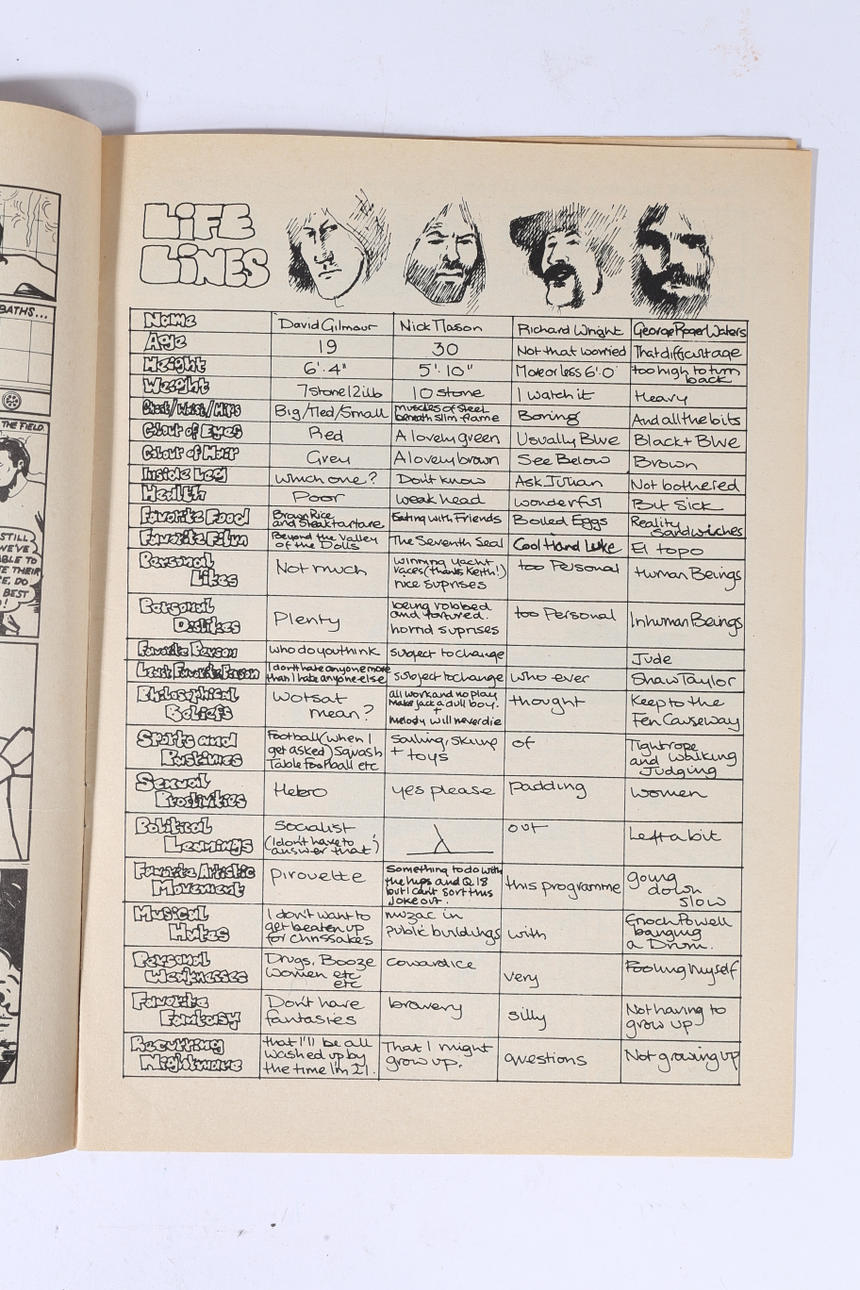 BATHS...
THE FIELD.
STILL
WE'VE
ABLE TO
THEIR
E, DO
BEST
O!
LIFE
LINES
Name David Gilmour Nick Mason Richard Wright George Roger Waters
Age 19 30 Not that worried That difficult age
Height 6'.4" 5'.10" More or less 6'.0" too high to turn
back
Weight 7 stone 12 llb 10 stone I watch it Heavy
Chest/Waist/Hips Big/Med/Small muscles of steel
beneath slim frame Boring And all the bits
Colour of Eyes Red A lovely green Usually Blue Black + Blue
Colour of Hair Grey A lovely brown See Below Brown
Inside Leg which one? Don't know Ask Julian Not bothered
Health Poor weak head wonderful But Sick
Favorite Food Brown Rice
and Steak tartare Eating with Friends Boiled Eggs Reality
Sandwiches
Favorite Film Beyond the Valley
of the Dolls The Seventh Seal Cool Hand Luke El topo
Personal
Likes Not much winning yacht
races (thanks Keith!)
nice suprises too Personal Human Beings
Personal
Dislikes Plenty being robbed
and tortured.
horrid suprises too Personal Inhuman Beings
Favorite Person who do you think subject to change Jude
Least Favorite Person I don't hate anyone more
than I hate anyone else subject to change who ever Shaw Taylor
Philosophical
Beliefs Wotsat
mean? all work and no play
make jack a dull boy.
+
Melody will never die thought Keep to the
Fen Causeway
Sports and
Pastimes Football (when I
get asked) Squash
Table Football etc Sailing, Skiing
+ toys of Tightrope
and walking
Judging
Sexual
Proclivities Hetero yes please padding women
Political
Leanings Socialist
(I don't have to
answer that!) out Left a bit
Favorite Artistic
Movement Pirouette Something to do with
the hips and Q 18
but I can't sort this
joke out. this programme going
down
slow
Musical
Hates I don't want to
get beaten up
for Chrissakes muzac in
public buildings with Enoch Powell
banging
a Drum.
Personal
Weaknesses Drugs, Booze
Women etc
etc cowardice very Fooling myself
Favorite
Fantasy Don't have
fantasies bravery silly Not having to
grow up
Recurring
Nightmare that I'll be all
washed up by
the time I'm 21. That I might
grow up. questions Not growing up